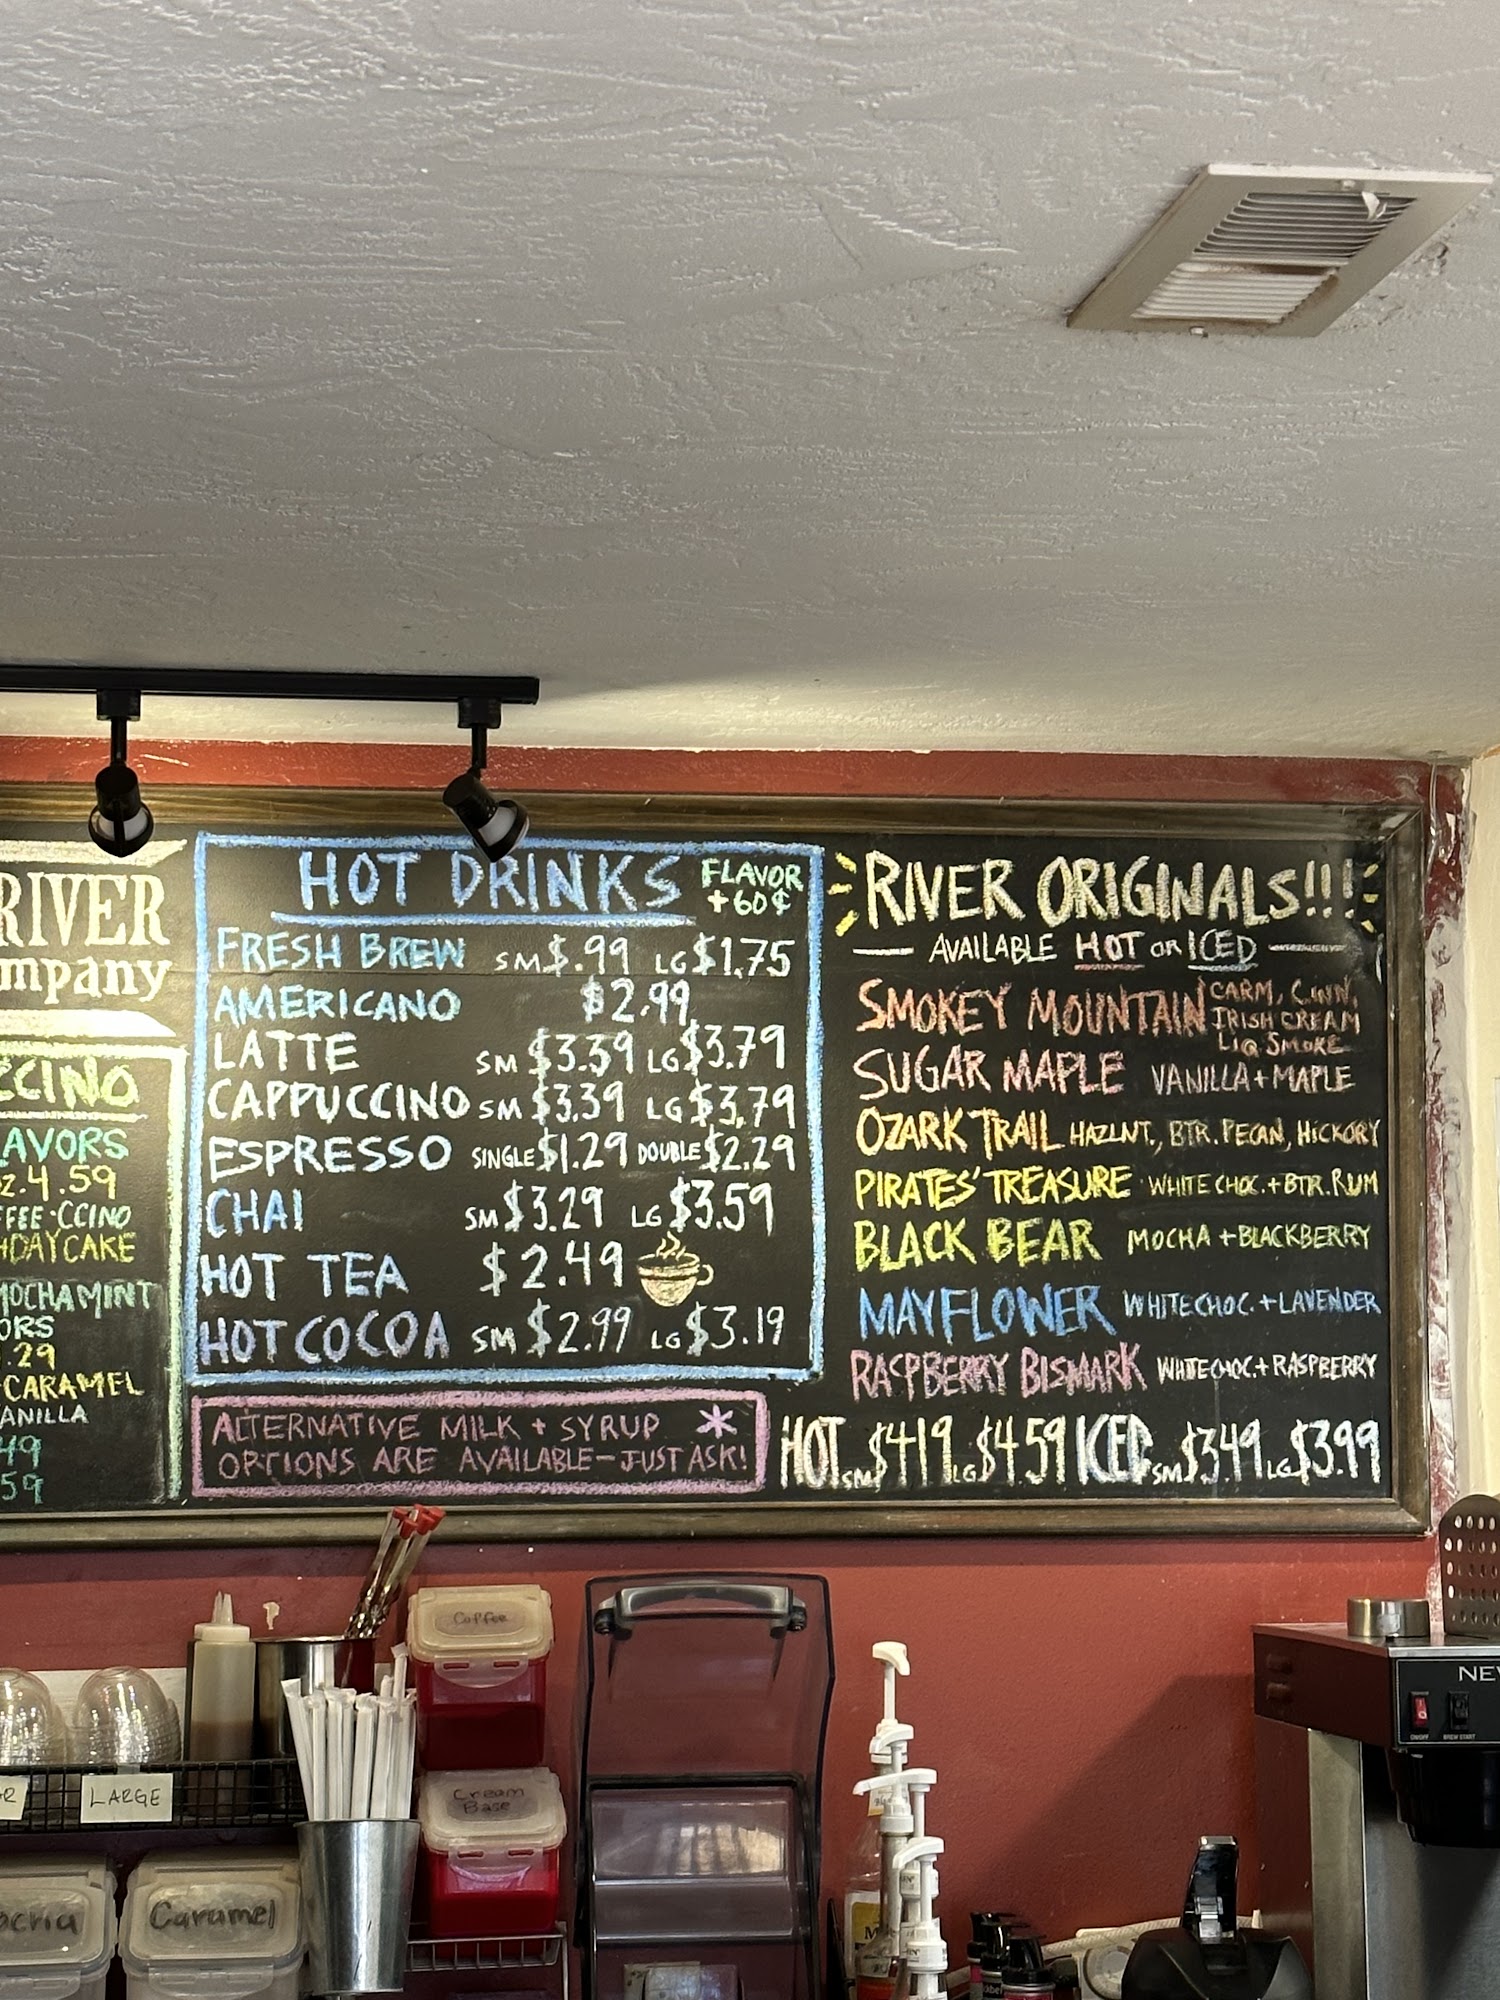 RIVER
mpany
CCINO
AVORS
Z. 4.59
FFEE·CCINO
HDAY CAKE
MOCHA MINT
ORS
.29
CARAMEL
ANILLA
49
59
HOT DRINKS
FLAVOR
+60¢
FRESH BREW SM $.99 LG $1.75
AMERICANO $2.99
LATTE SM $3.39 LG $3.79
CAPPUCCINO SM $3.39 LG $3.79
ESPRESSO SINGLE $1.29 DOUBLE $2.29
CHAI SM $3.29 LG $3.59
HOT TEA $2.49
HOT COCOA SM $2.99 LG $3.19
ALTERNATIVE MILK + SYRUP *
OPTIONS ARE AVAILABLE - JUST ASK!
RIVER ORIGINALS!!!
AVAILABLE HOT OR ICED
SMOKEY MOUNTAIN CARM, CINN,
IRISH CREAM
LIQ SMOKE
SUGAR MAPLE VANILLA + MAPLE
OZARK TRAIL HAZLNT., BTR. PECAN, HICKORY
PIRATES' TREASURE WHITE CHOC. + BTR. RUM
BLACK BEAR MOCHA + BLACKBERRY
MAYFLOWER WHITE CHOC. + LAVENDER
RASPBERRY BISMARK WHITE CHOC. + RASPBERRY
HOT SM $4.19 LG $4.59 ICED SM $3.49 LG $3.99
Coffee
Cream
Base
LARGE
Caramel
NEW
ON/OFF BREW START